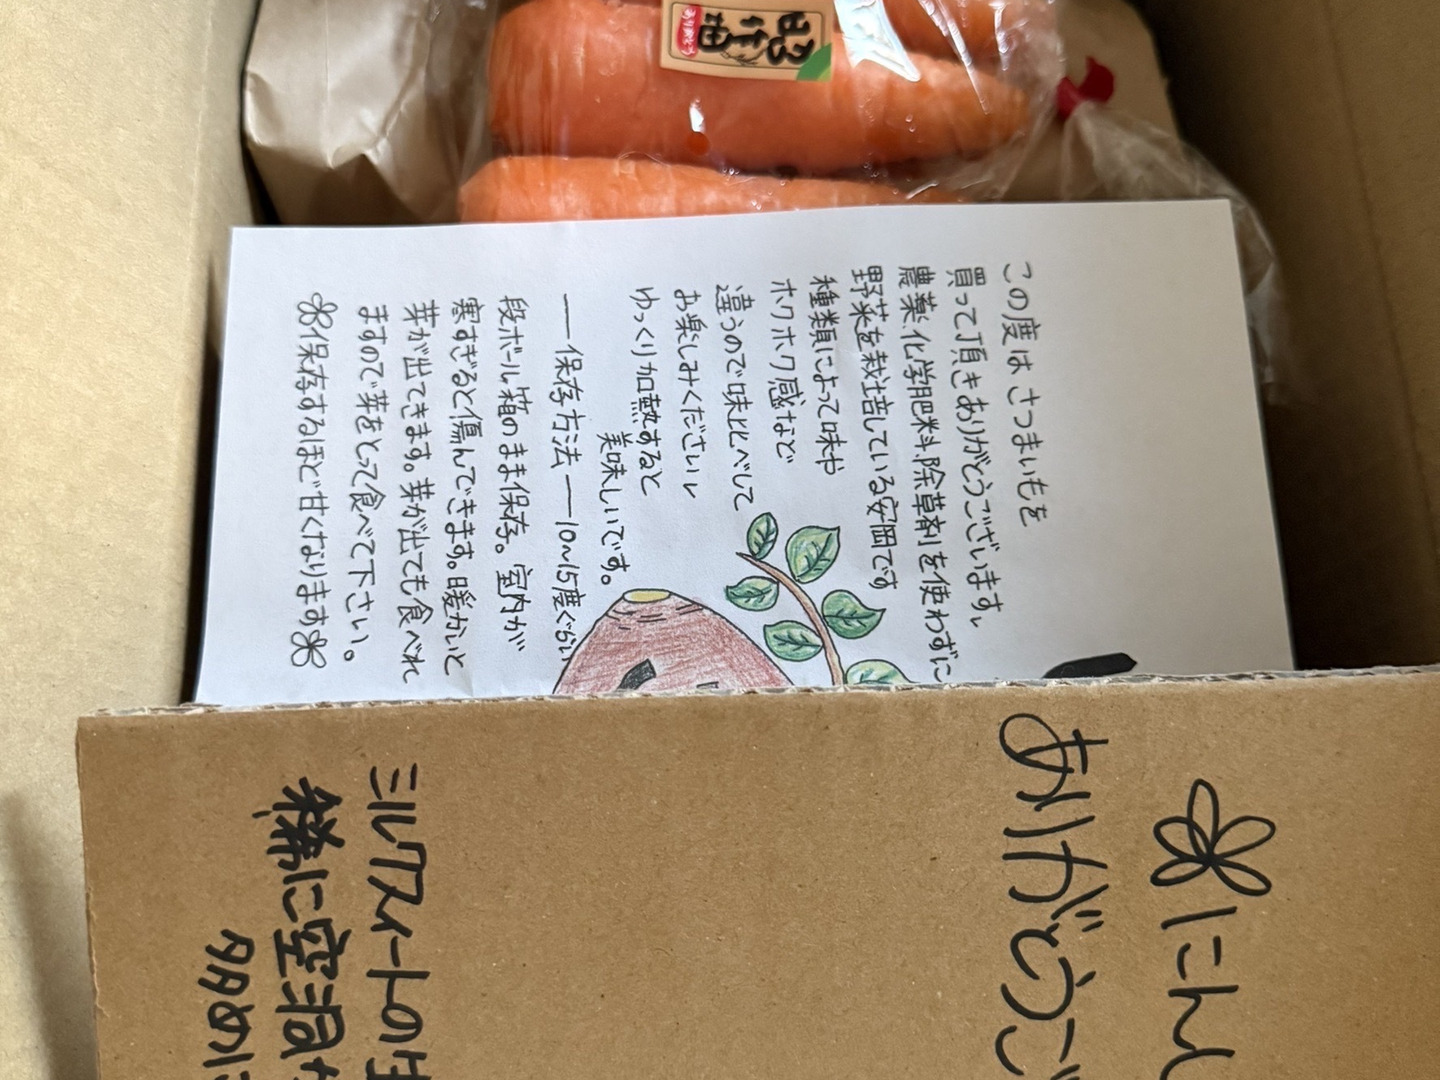 昭作畑
ありがとう
この度は さつまいもを
買って頂きありがとうございます。
農薬、化学肥料、除草剤を使わずに
野菜を栽培している安岡です
種類によって味や
ホクホク感など
違うので味比べして
お楽しみください。
ゆっくり加熱すると
美味しいです。
――保存方法――10〜15度ぐらい
段ボール箱のまま保存。室内が
寒すぎると傷んできます。暖かいと
芽が出てきます。芽が出ても食べれ
ますので芽をとって食べて下さい。
保存するほど甘くなります
にん
ありがとうご
ミルクスィートの生
稀に空洞
多めに